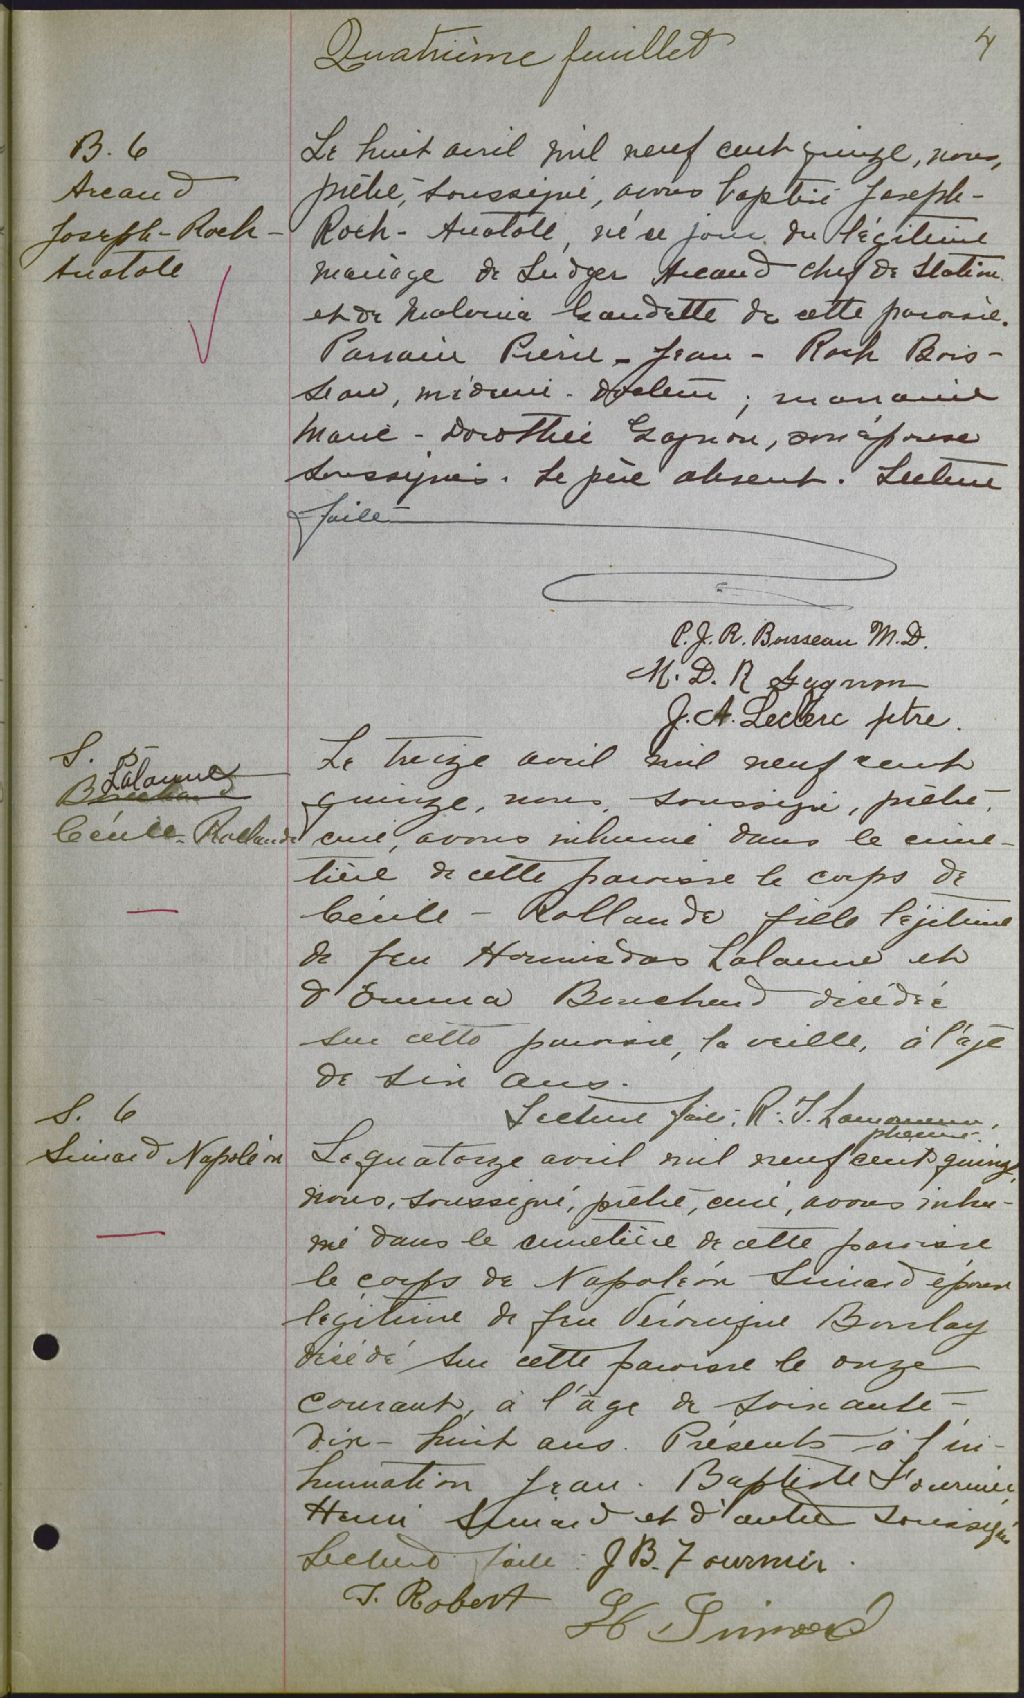 Quatrième feuillet
4
B. 6
Arcand
Joseph-Roch-
Anatole
Le huit avril mil neuf cent quinze, nous,
prêtre, soussigné, avons baptisé Joseph-
Roch-Anatole, né ce jour du légitime
mariage de Ludger Arcand chef de Station
et de Malvina Gaudette de cette paroisse.
Parrain Pierre-Jean-Roch Bois-
seau, médecin-docteur; marraine
Marie-Dorothée Gagnon, son épouse
soussignés. Le père absent. Lecture
faite
P.J.R. Boisseau M.D.
M.D.R Gagnon
J.A. Leclerc ptre.
S. 5
Lalanne
Bouchard
Cécile-Rollande
Le treize avril mil neuf cent
quinze, nous, soussigné, prêtre,
curé, avons inhumé dans le cime-
tière de cette paroisse le corps de
Cécile-Rollande fille légitime
de feu Hormisdas Lalanne et
d'Emma Bouchard décédée
sur cette paroisse, la veille, à l'âge
de six ans.
Lecture faite. R.
S. 6
Simard Napoléon
Le quatorze avril mil neuf cent quinze,
nous, soussigné, prêtre, curé, avons inhu-
mé dans le cimetière de cette paroisse
le corps de Napoléon Simard époux
légitime de feu Véronique Boulay
décédé sur cette paroisse le onze
courant, à l'âge de soixante-
dix-huit ans. Présents à l'in-
humation Jean-Baptiste Fournier
Henri Simard et d'autres soussignés
Lecture faite. J B. Fournier.
T. Robert
H Simard